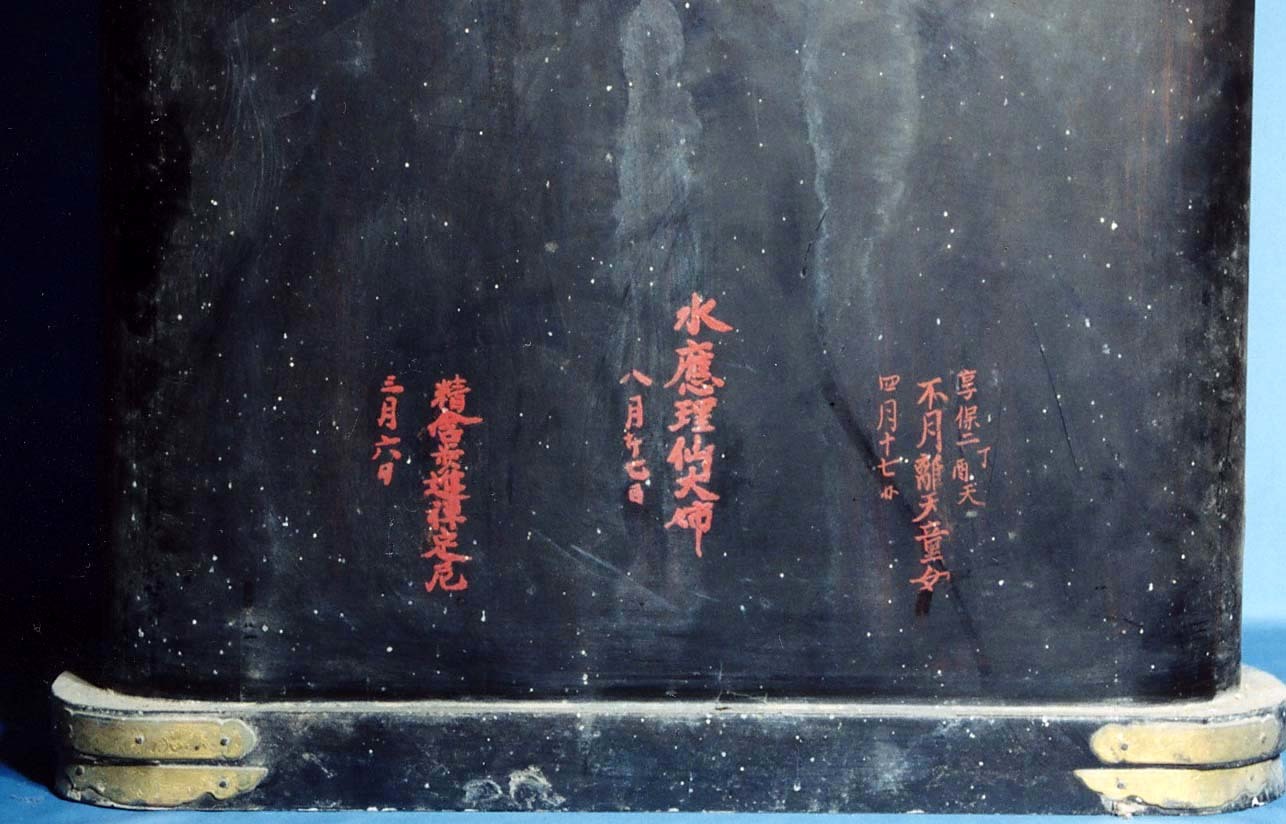 享保二丁酉天
不月離天童女
四月十七日
水應理仙大師
八月廿七日
精含
禅定尼
三月六日